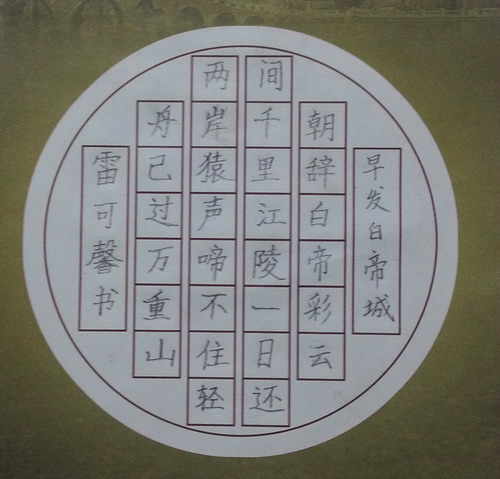 早发白帝城
朝辞白帝彩云
间千里江陵一日还
两岸猿声啼不住轻
舟已过万重山
雷可馨书